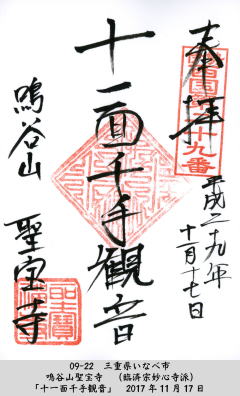 奉拝
十九番
平成二九年
十一月十七日
十一面千手観音
鳴谷山
聖宝寺
聖寶
09-22 三重県いなべ市
鳴谷山聖宝寺 (臨済宗妙心寺派)
「十一面千手観音」 2017年11月17日